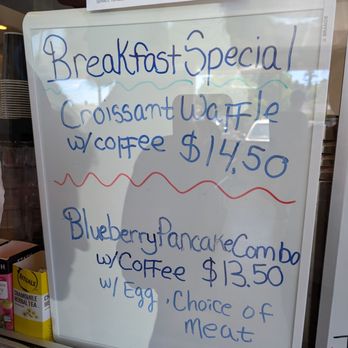 Breakfast Special
Croissant Waffle
w/coffee $14.50
Blueberry Pancake Combo
w/Coffee $13.50
w/ Egg, Choice of
meat
CHAMOMILE
HERBAL TEA